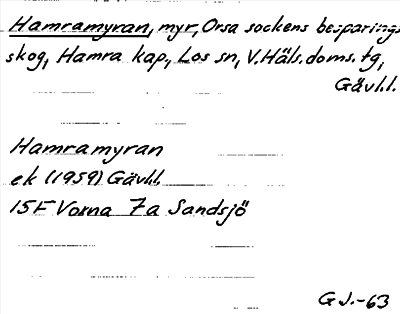 Hamramyran, myr, Orsa sockens besparings
skog, Hamra kap., Los sn, V. Häls. doms. tg,
Gävl.l.
Hamramyran
ek (1959) Gävl.l.
15F Voxna 7a Sandsjö
G J.-63